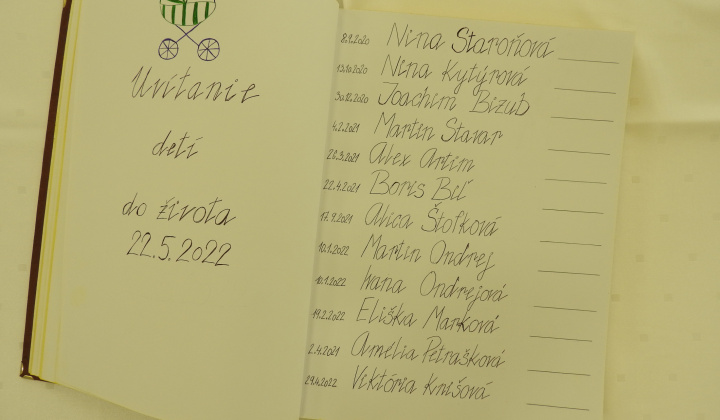 Uvítanie
detí
do života
22.5.2022
8.9.2020 Nina Staroňová
13.10.2020 Nina Kytýrová
30.12.2020 Joachim Bizub
4.2.2021 Martin Stavar
28.3.2021 Alex Artim
22.4.2021 Boris Bil
17.9.2021 Alica Štofková
10.1.2022 Martin Ondrej
10.1.2022 Ivana Ondrejová
19.2.2022 Eliška Marková
2.4.2021 Amélia Petrašková
29.4.2022 Viktória Knišová